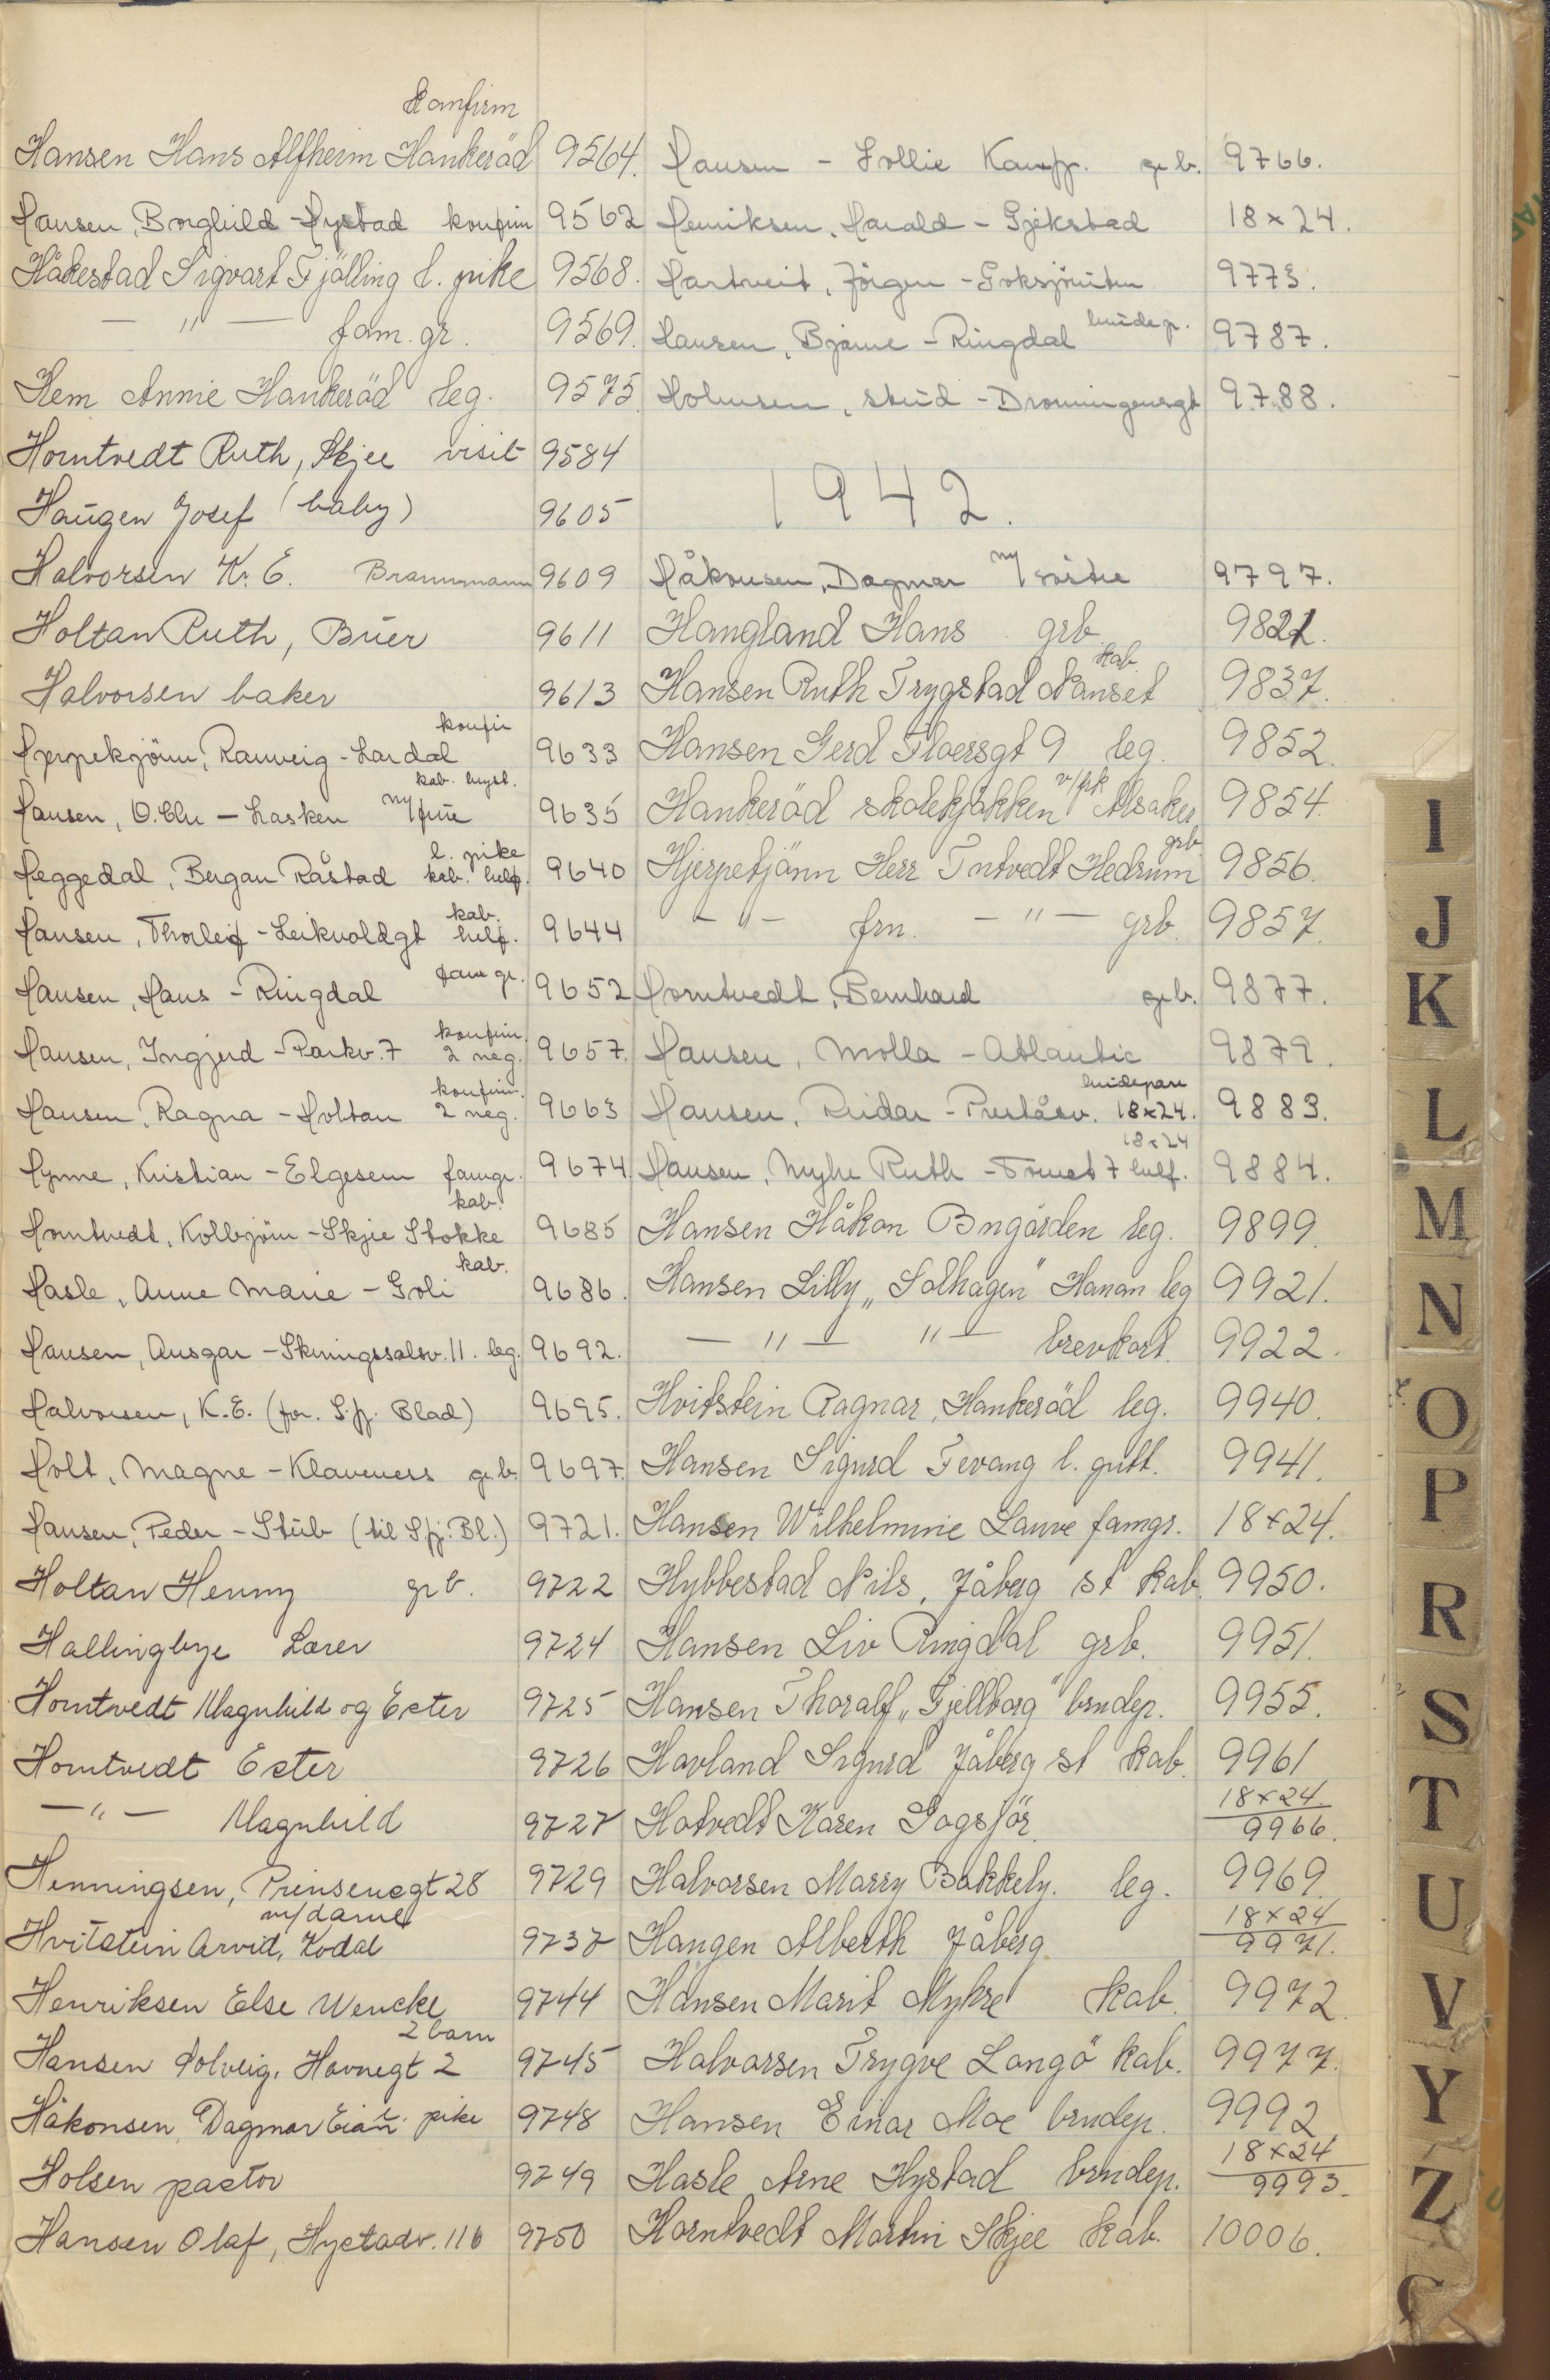 Konfirm
Hansen Hans Alfheim Hankeröd 9564.
Hansen, Borghild - Hystad konfirm 9562
Håkestad Sigvart Fjölling l. pike 9568.
— " — fam. gr. 9569.
Hem Annie Hankeröd leg. 9575
Horntvedt Ruth, Skjee visit 9584
Haugen Josef (baby) 9605
Halvorsen Kr. E. Brannmann 9609
Holtan Ruth, Buer 9611
Halvorsen baker 9613
konfir
Hjerpekjönn, Ranveig - Lardal 9633
kab. bryst.
Hansen, O. Chr - Lasken m/frue 9635
l. pike
Heggedal, Bergan Råstad kab. helf. 9640
kab.
Hansen, Thorleif - Leikvoldgt helf. 9644
Hansen, Hans - Ringdal fam gr. 9652
konfirm
Hansen, Ingjerd - Parkv. 7 2 neg. 9657.
konfirm.
Hansen, Ragna - Holtan 2 neg. 9663
Hynne, Kristian - Elgesem famgr. 9674
kab.
Horntvedt, Kolbjörn - Skjee Stokke 9685
kab.
Hasle, Anne Marie - Goli 9686.
Hansen, Ansgar - Skiringssalsv. 11. leg. 9692.
Halvorsen, K.E. (for. S.fj. Blad) 9695.
Holt, Magne - Klaveness gr.b. 9697.
Hansen, Peder - Stub (til Sfj. Bl.) 9721.
Holtan Henny gr b. 9722
Hallingbye Lærer 9724
Horntvedt Magnhild og Ester 9725
Horntvedt Ester 9726
— " — Magnhild 9727
Henningsen, Prinsensgt 28 9729
m/dame
Hvitstein Arvid, Kodal 9737
Henriksen Else Wencke 9744
2 barn
Hansen Solveig, Havnegt 2 9745
Håkonsen, Dagmar Eian l. pike 9748
Holsen pastor 9749
Hansen Olaf, Hystadv. 116 9750
Hansen - Lollie Kampf. gr b. 9766.
Henriksen, Harald - Gjekstad 18 x 24.
Hartveit, Jörgen - 9773.
Hansen, Bjarne - Ringdal brudep. 9787.
Holmsen, stud - Dronningensgt 9788.
1942.
Håkonsen, Dagmar m/ söstre 9797.
Haugland Hans grb 9821.
kab.
Hansen Ruth Trygstad Nanset 9837.
Hansen Gerd Thaersgt 9 leg. 9852.
Hankeröd skolekjökken v/frk Alsaker 9854.
grb
Hjerpetjönn Herr Tntvedt Hedrum 9856.
— " — fru. — " — grb. 9857.
Horntvedt, Bernhard gr b. 9877.
Hansen, Molla - Atlantic 9879.
brudepar
Hansen, Reidar - Preståsv. 18x24. 9883.
18x24
Hansen, Myhre Ruth - 7 helf. 9884.
Hansen Håkon Bugården leg. 9899.
Hansen Lilly „Solhagen" Hanan leg 9921.
— " — " — brevkort. 9922.
Hvitstein Ragnar, Hankeröd leg. 9940.
Hansen Sigurd Fevang l. gutt. 9941.
Hansen Wilhelmine Lauve famgr. 18 x 24.
Hybbestad Nils, Jåberg st kab. 9950.
Hansen Liv Ringdal grb. 9951.
Hansen Thoralf „Fjellborg" brudep. 9955.
Havland Sigurd Jåberg st kab. 9961
18 x 24.
Hotvedt Karen Gogsjör 9966.
Halvorsen Marry Bakkely. leg. 9969
18 x 24
Haugen Alberth Jåberg 9971.
Hansen Marit Mykre kab. 9972.
Halvorsen Trygve Langö kab. 9977.
Hansen Einar Moe brudep. 9992
18 x 24
Hasle Arne Hystad brudep. 9993.
Horntvedt Martin Skjee kab. 10006.
I
J
K
L
M
N
O
P
R
S
T
U
V
Y
Z